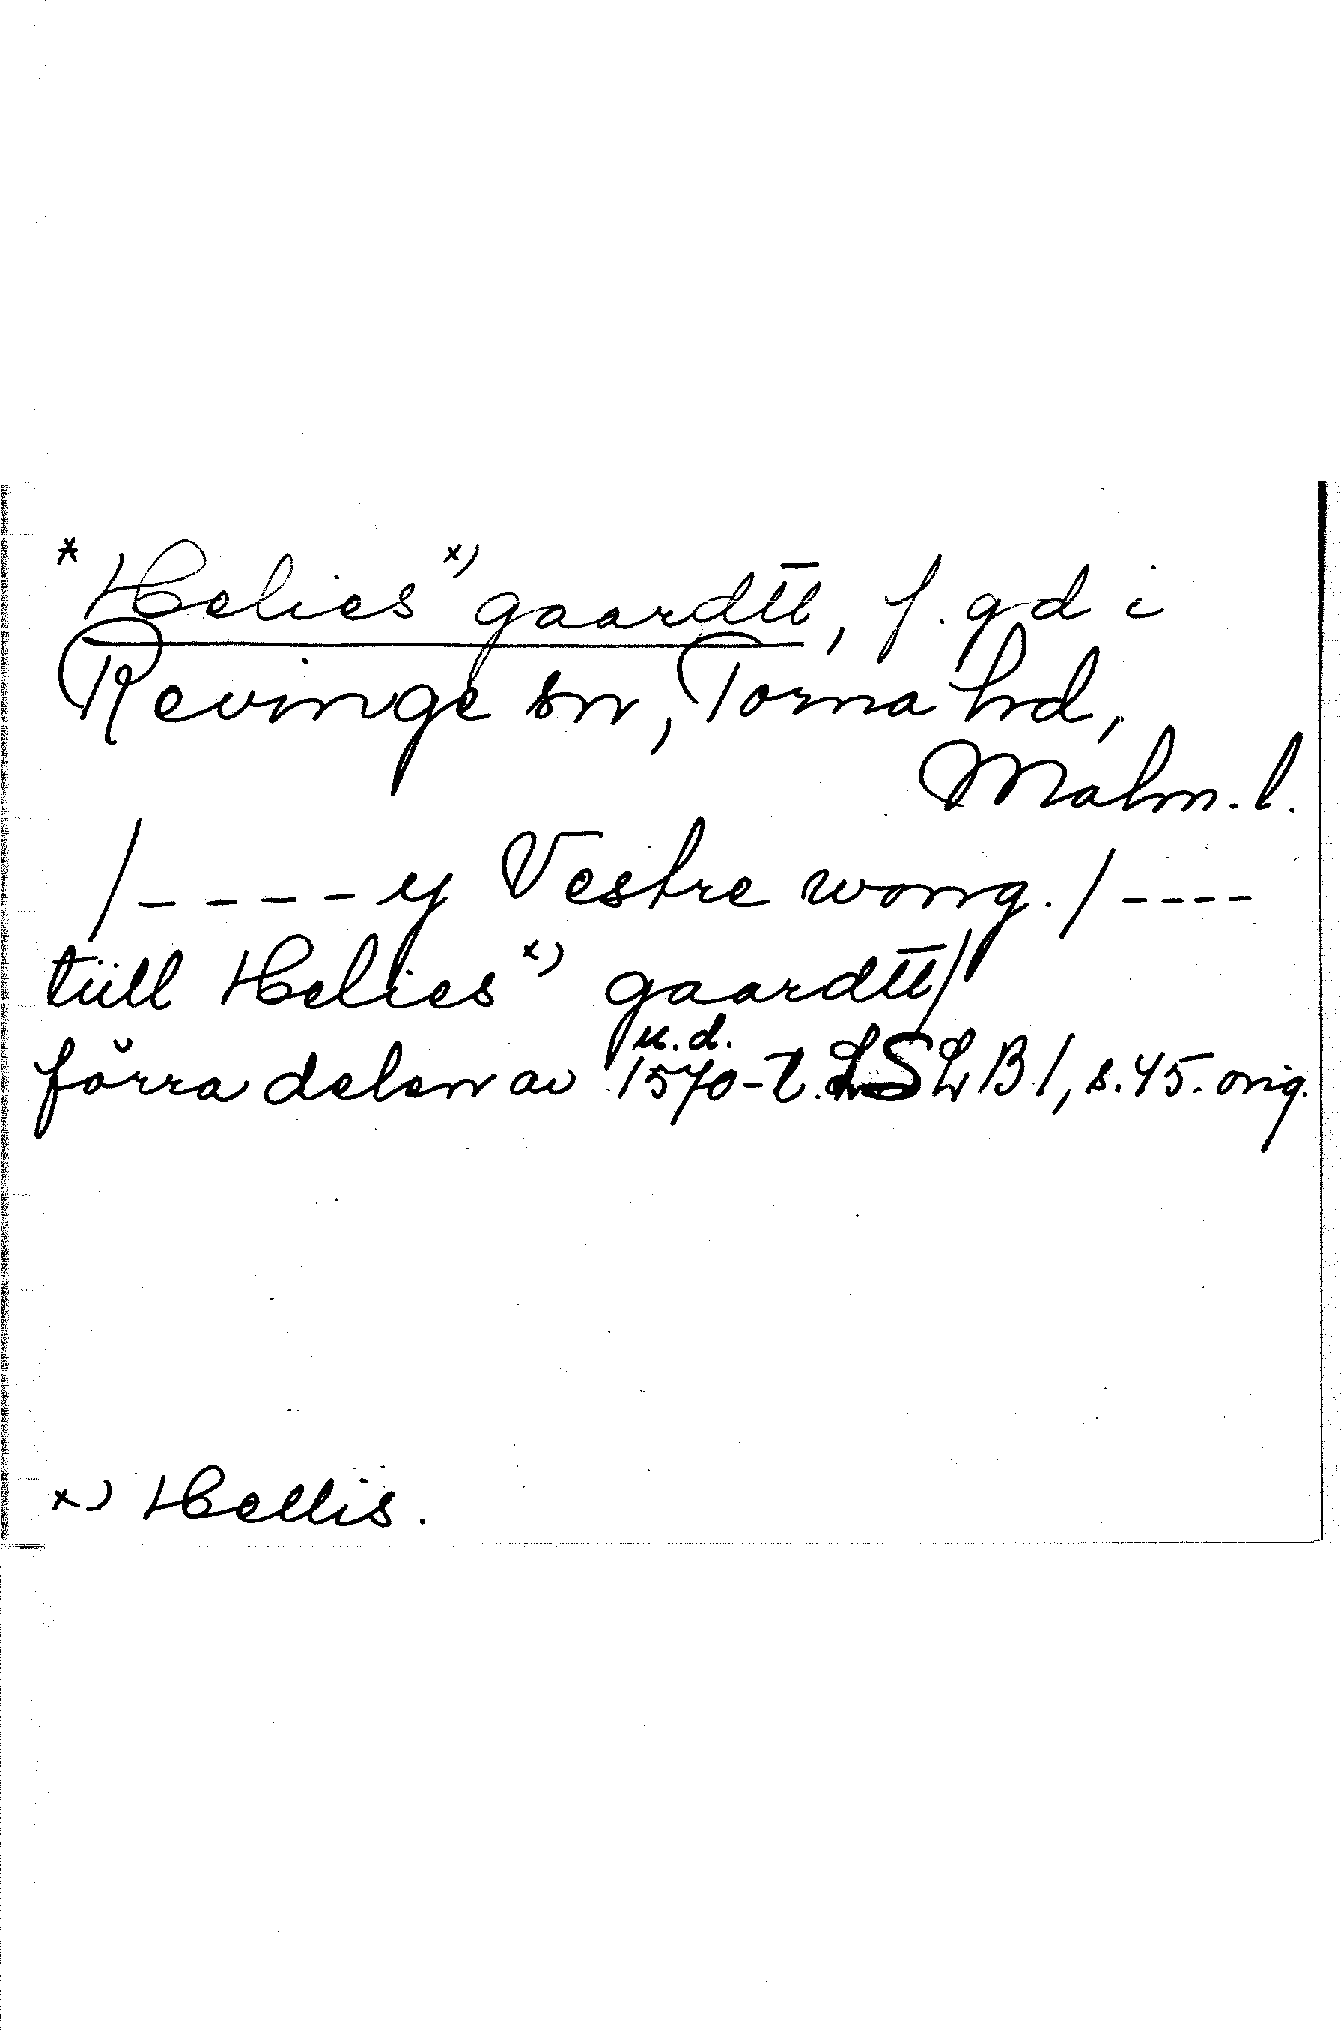 *Helies x) gaardtt, f. gd i
Revinge sn, Torna hd,
Malm. l.
/---- y Vestre wong. / ----
tiill Helies x) gaardtt/
u.d.
förra delen av 1570-t. LSLB 1, s. 45. orig.
x) Hellis.